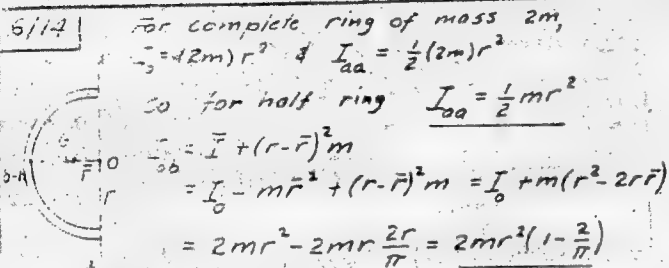 6/14
For complete ring of mass 2m,
I₀ = (2m)r² & I_aa = ½(2m)r²
So for half ring I_aa = ½mr²
G
b-b
r̄
O
r
I_bb = Ī + (r-r̄)²m
= I₀ - mr̄² + (r-r̄)²m = I₀ + m(r² - 2rr̄)
= 2mr² - 2mr 2r/π = 2mr²(1 - 2/π)